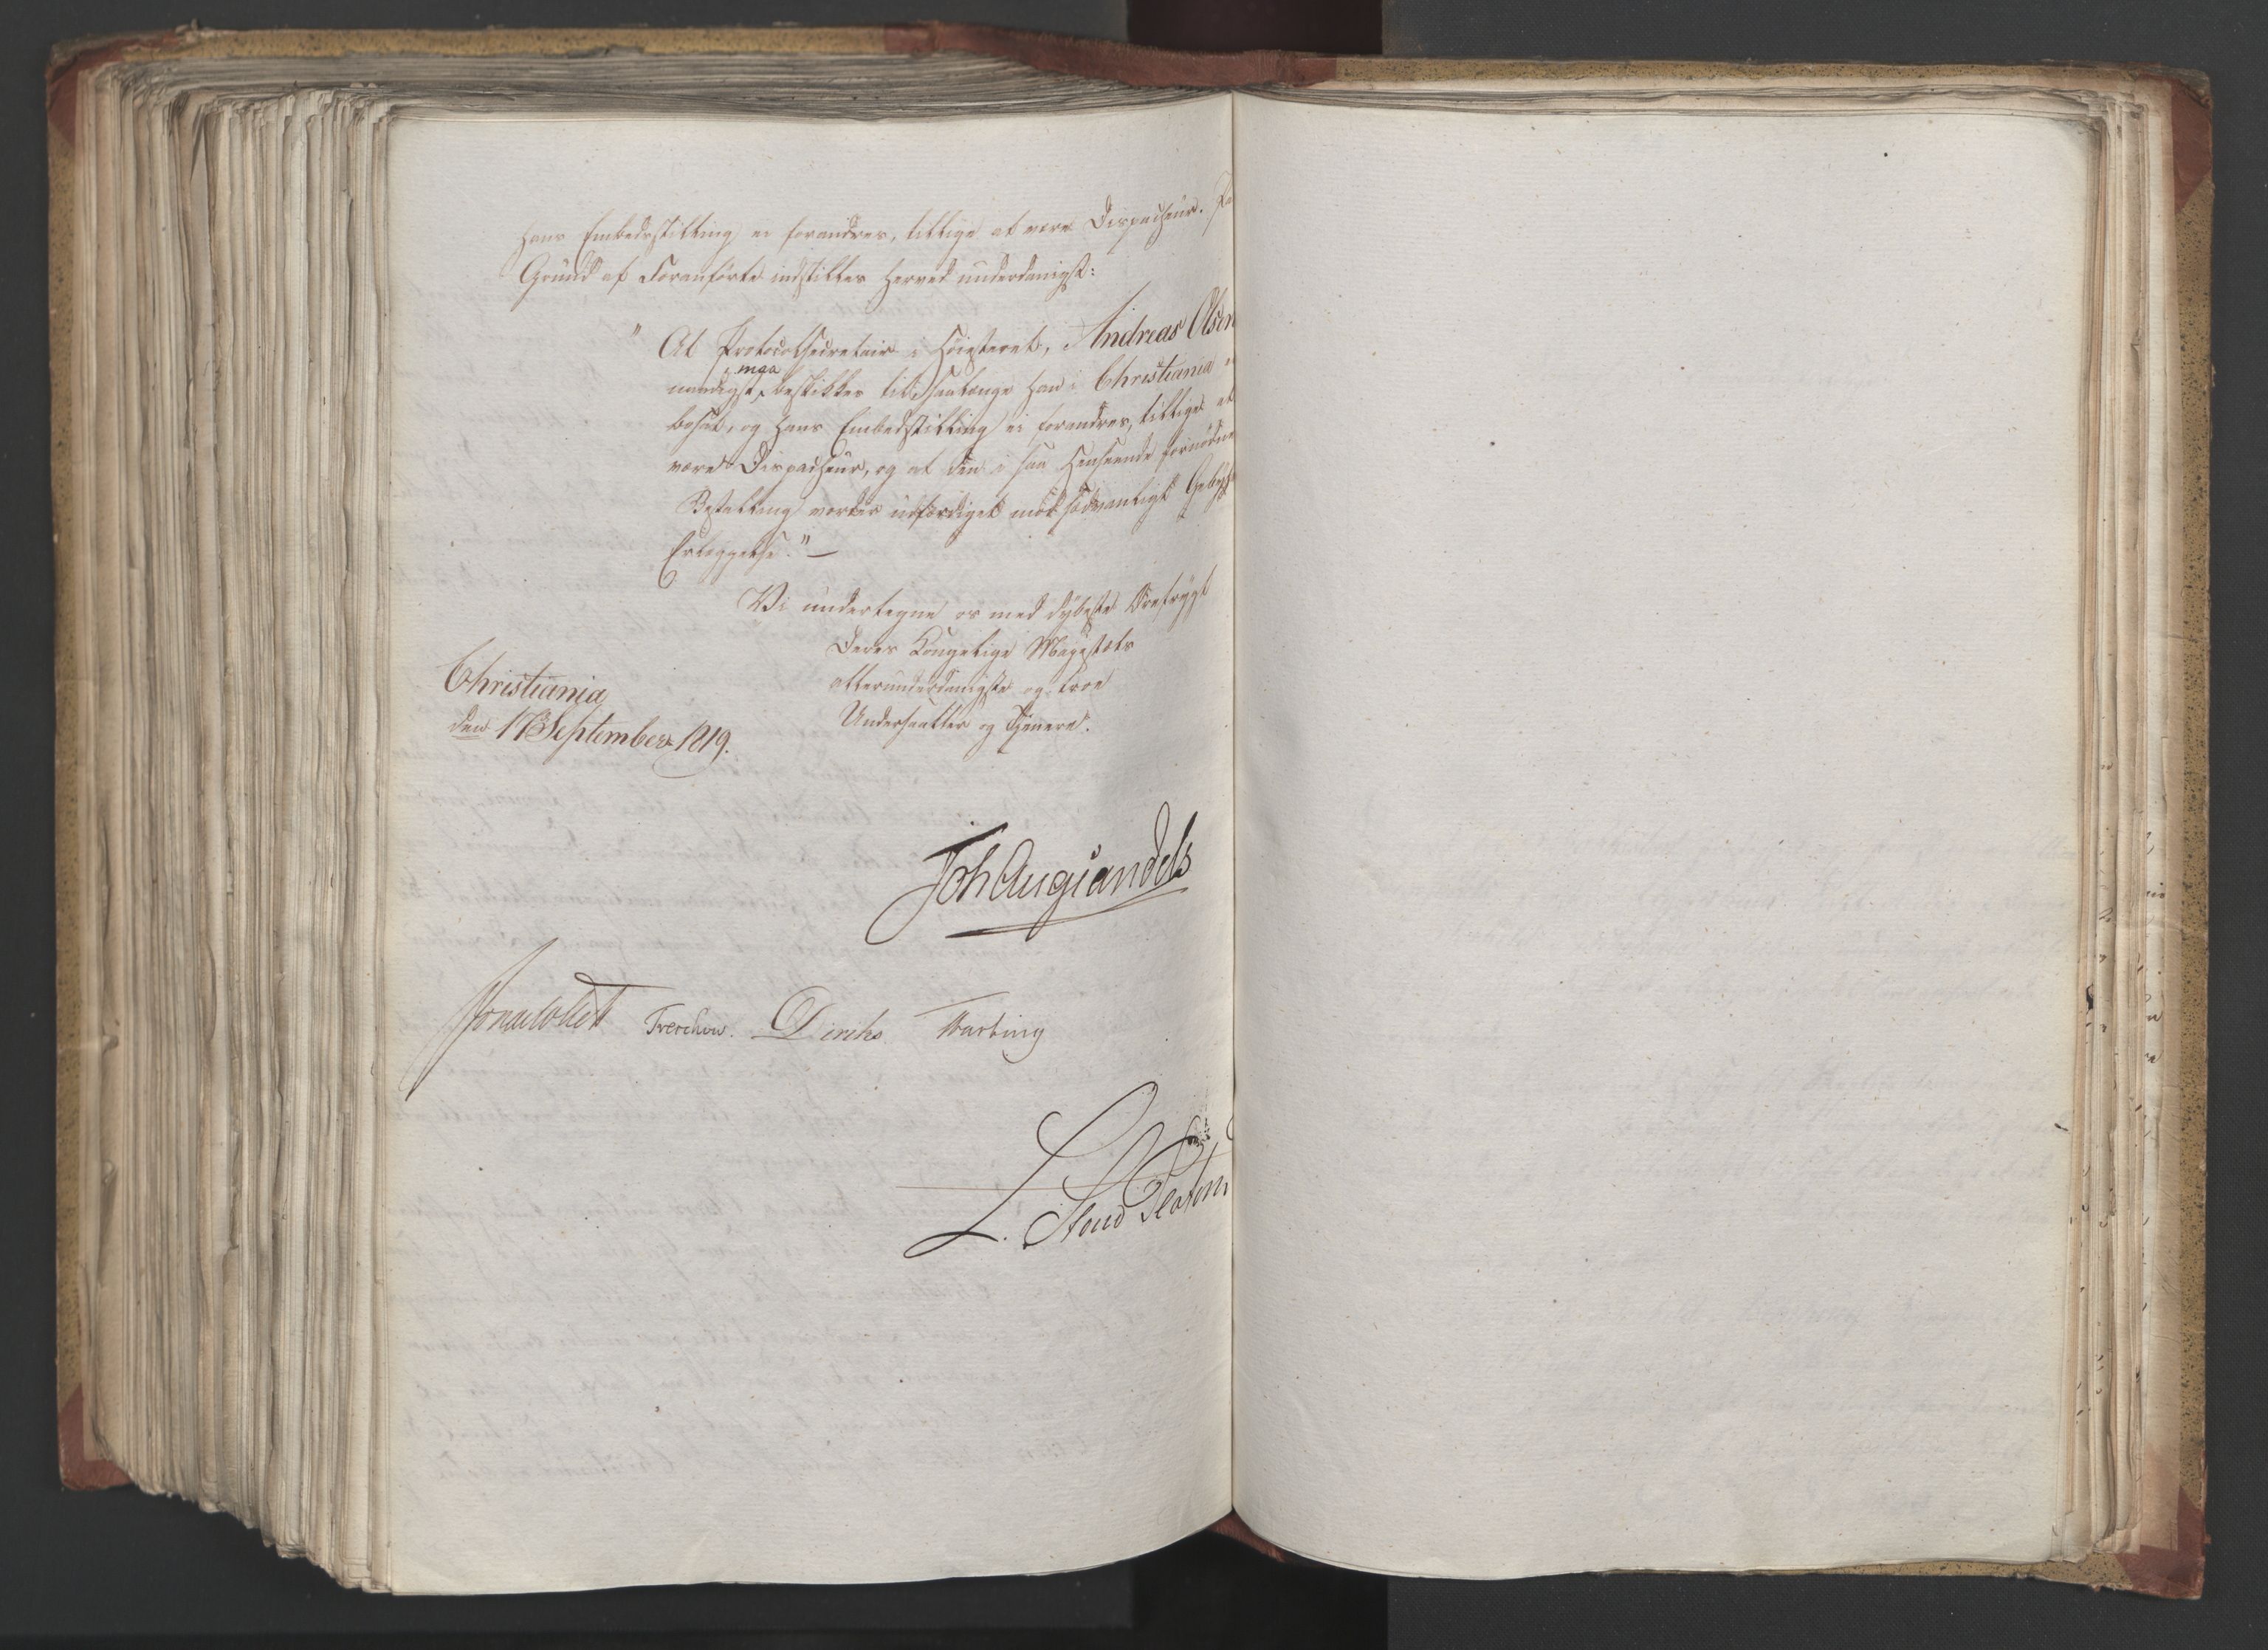 hans Embedsstilling ei forandres, tillige at være Dispacheur. Paa
Grund af Foranførte indstilles herved underdanigst:
" At Protocolsecretair i Høiesteret, Andreas Olsen
naadigst maa beskikkes til, saalænge han i Christiania er
bosat, og hans Embedsstilling ei forandres, tillige at
være Dispacheur, og at den i saa Henseende fornødne
Bestalling vorder udfærdiget mod sædvanligt Gebyrs
Erlæggelse." —
Vi undertegne os med dybeste Ærefrygt
Deres Kongelige Majestæts
allerunderdanigste og troe
Undersaatter og Tjenere.
Christiania
den 17 September 1819.
Joh Aug Sandels
Jonas Collett Treschow. Diriks Motzfeldt
L. Stoud Platou